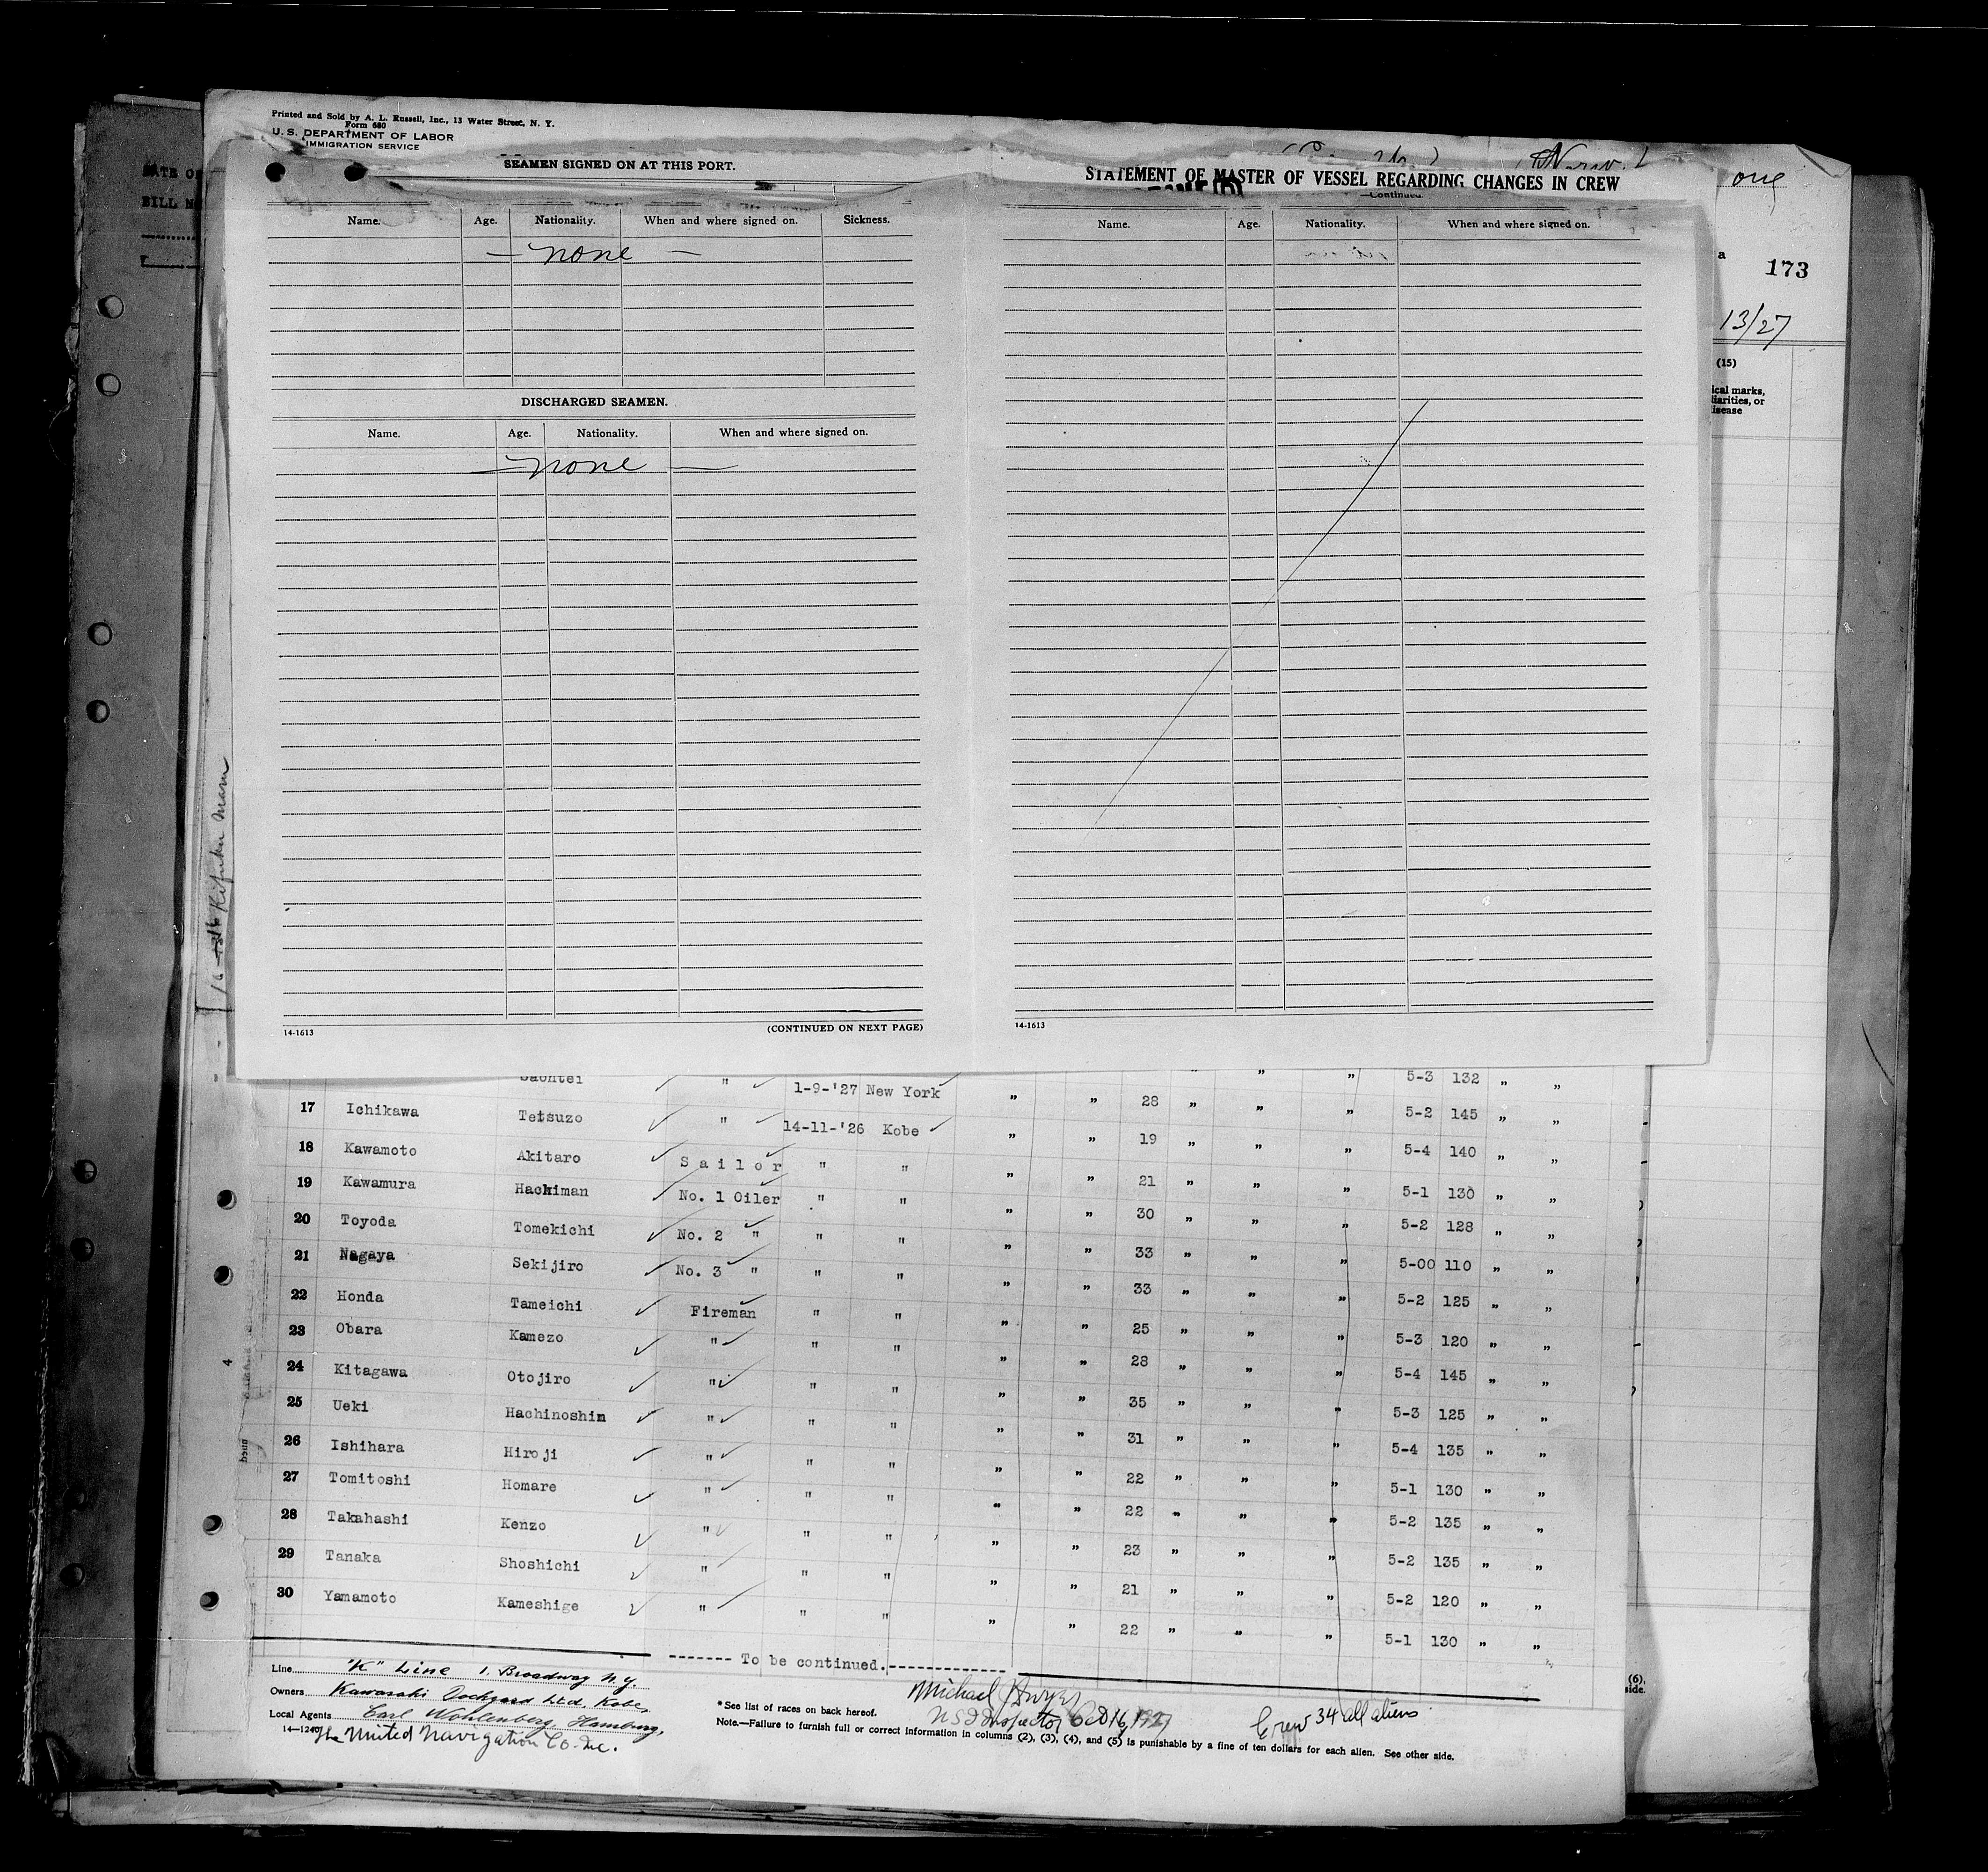 Printed and Sold by A. L. Russell, Inc., 13 Water Street, N. Y.
Form 680
U. S. DEPARTMENT OF LABOR
IMMIGRATION SERVICE
SEAMEN SIGNED ON AT THIS PORT.
Name. Age. Nationality. When and where signed on. Sickness.
— none —
DISCHARGED SEAMEN.
Name. Age. Nationality. When and where signed on.
— none —
14-1613 (CONTINUED ON NEXT PAGE)
STATEMENT OF MASTER OF VESSEL REGARDING CHANGES IN CREW
—Continued.
Name. Age. Nationality. When and where signed on.
14-1613
one
a 173
13/27
(15)
ical marks,
liarities, or
isease
Kifuku Maru
" 1-9-'27 New York " " 28 " " " 5-3 132 " "
17 Ichikawa Tetsuzo " 14-11-'26 Kobe " " 19 " " " 5-2 145 " "
18 Kawamoto Akitaro Sailor " " " " 21 " " " 5-4 140 " "
19 Kawamura Hachiman No. 1 Oiler " " " " 30 " " " 5-1 130 " "
20 Toyoda Tomekichi No. 2 " " " " " 33 " " " 5-2 128 " "
21 Nagaya Sekijiro No. 3 " " " " " 33 " " " 5-00 110 " "
22 Honda Tameichi Fireman " " " " 25 " " " 5-2 125 " "
23 Obara Kamezo " " " " " 28 " " " 5-3 120 " "
24 Kitagawa Otojiro " " " " " 35 " " " 5-4 145 " "
25 Ueki Hachinoshin " " " " " 31 " " " 5-3 125 " "
26 Ishihara Hiroji " " " " " 22 " " " 5-4 135 " "
27 Tomitoshi Homare " " " " " 22 " " " 5-1 130 " "
28 Takahashi Kenzo " " " " " 23 " " " 5-2 135 " "
29 Tanaka Shoshichi " " " " " 21 " " " 5-2 135 " "
30 Yamamoto Kameshige " " " " " 22 " " " 5-2 120 " "
5-1 130 " "
------- To be continued.------------
Line "K" Line 1. Broadway N.Y.
Owners Kawasaki Dockyard Ltd. Kobe,
Local Agents Carl Wohlenberg, Hamburg,
14—1240 The United Navigation Co. Inc.
*See list of races on back hereof.
Michael Dwyer
US I Inspector Oct 16, 1927
Crew 34 all aliens
Note.—Failure to furnish full or correct information in columns (2), (3), (4), and (5) is punishable by a fine of ten dollars for each alien. See other side.
(6),
side.